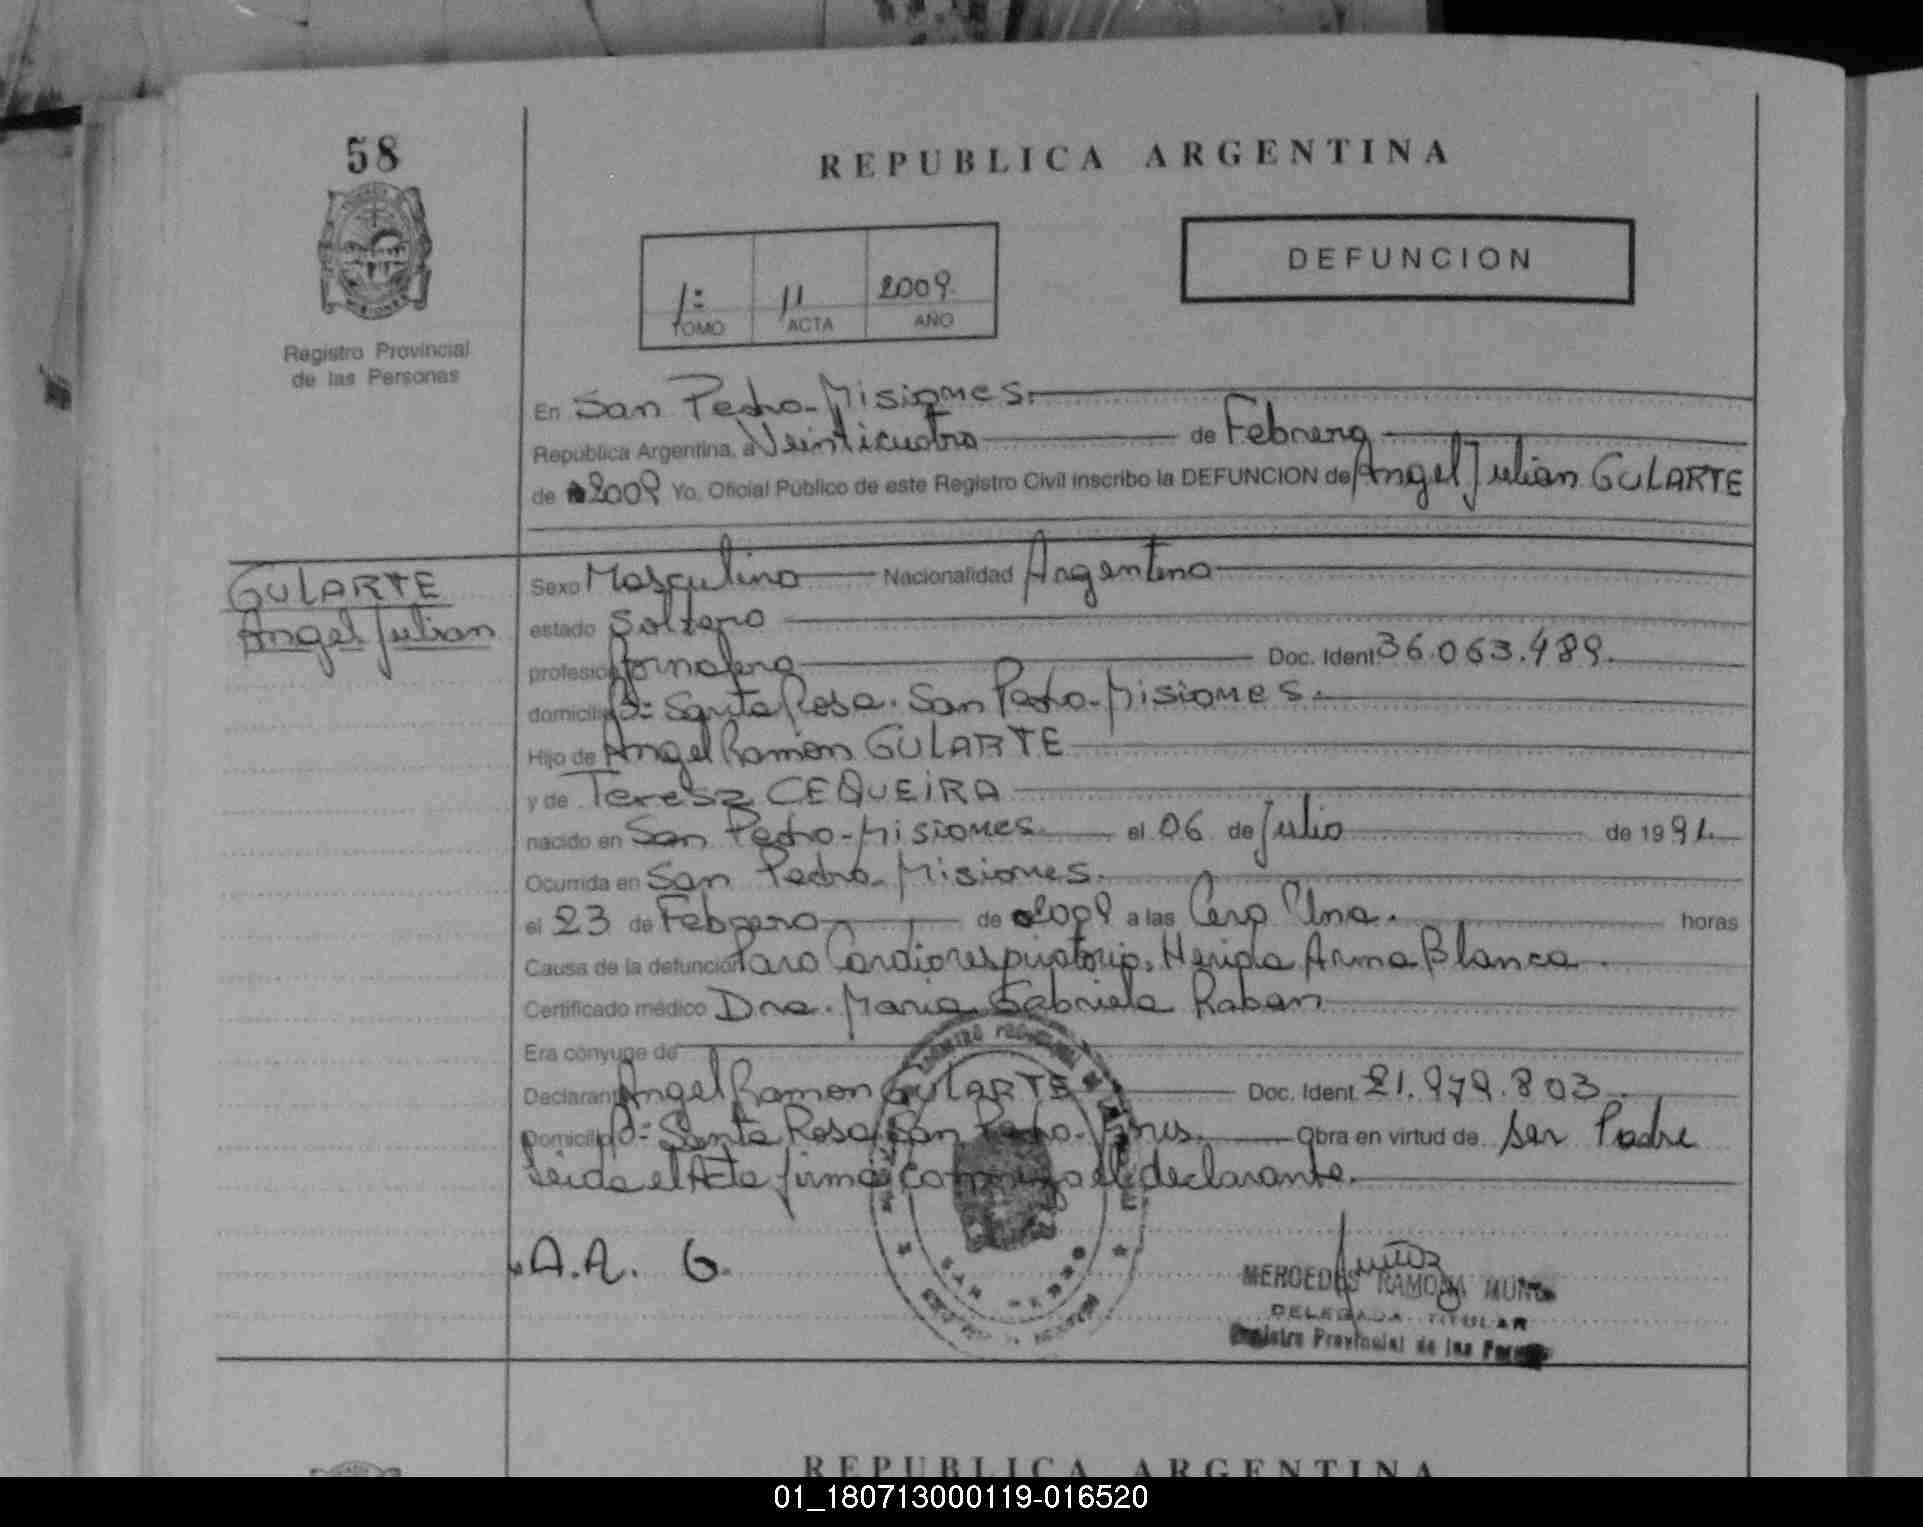 58
REPUBLICA ARGENTINA
MISIONES
Registro Provincial
de las Personas
DEFUNCION
1= 11 2009
TOMO ACTA AÑO
En San Pedro-Misiones.
República Argentina, a Veinticuatro de Febrero
de 2009 Yo, Oficial Público de este Registro Civil inscribo la DEFUNCION de Angel Julian GULARTE
GULARTE
Angel Julian
Sexo Masculino Nacionalidad Argentino
estado Soltero
profesion Jornalero Doc. Ident. 36.063.489.
domicilio B= Santa Rosa. San Pedro-Misiones.
Hijo de Angel Ramon GULARTE
y de Teresa CEQUEIRA
nacido en San Pedro-Misiones. el 06 de Julio de 1991.
Ocurrida en San Pedro-Misiones.
el 23 de Febrero de 2009 a las Cero Una. horas
Causa de la defunción Paro Cardiorespiratorio, Herida Arma Blanca.
Certificado médico Dra. Maria Gabriela Raban
Era cónyuge de
Declarante Angel Ramon GULARTE Doc. Ident. 21.979.803.
Domicilio B= Santa Rosa San Pedro-Mnes. Obra en virtud de ser Padre
Leida el Acta firma conmigo el declarante.
A.A. G.
MERCEDES RAMONA MUÑOZ
DELEGADA TITULAR
Registro Provincial de las Personas
REPUBLICA ARGENTINA
01_180713000119-016520